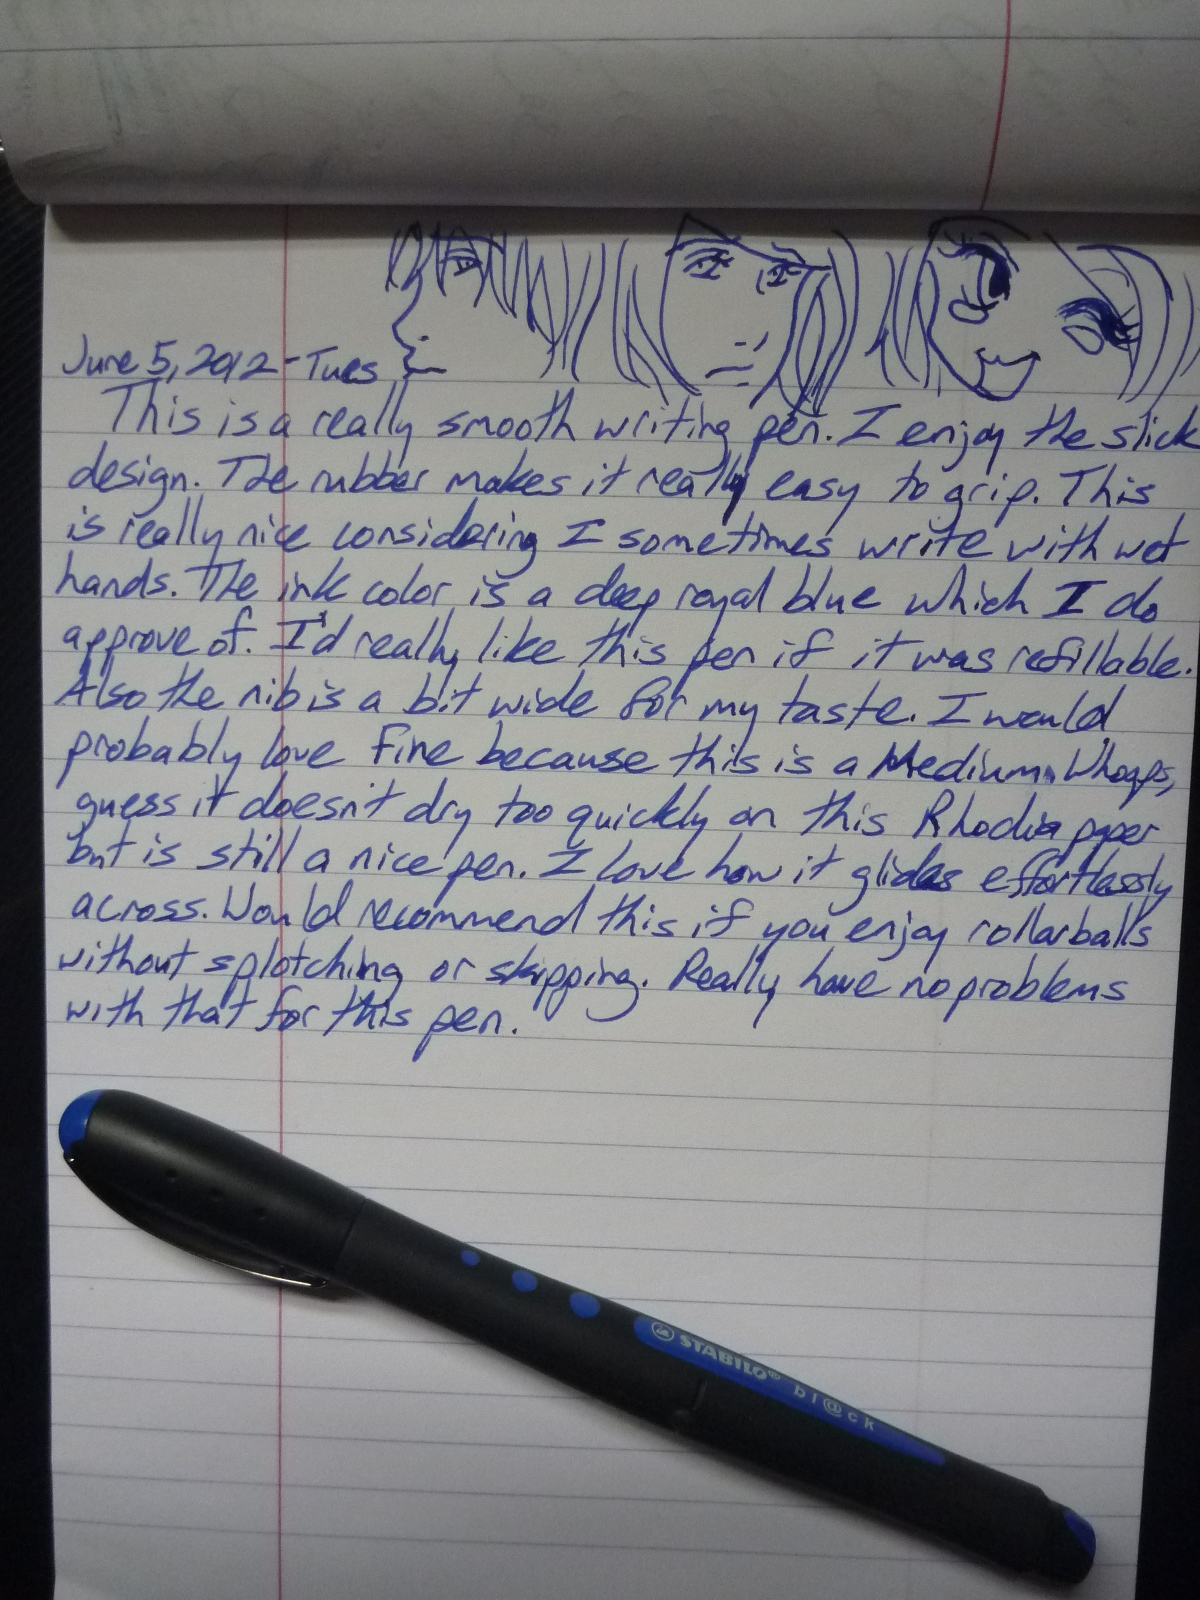 June 5, 2012 - Tues
This is a really smooth writing pen. I enjoy the slick
design. The rubber makes it really easy to grip. This
is really nice considering I sometimes write with wet
hands. The ink color is a deep royal blue which I do
approve of. I'd really like this pen if it was refillable.
Also the nib is a bit wide for my taste. I would
probably love Fine because this is a Medium. Whoops,
guess it doesn't dry too quickly on this Rhodia paper
but is still a nice pen. I love how it glides effortlessly
across. Would recommend this if you enjoy rollarballs
without splotching or skipping. Really have no problems
with that for this pen.
STABILO® bl@ck